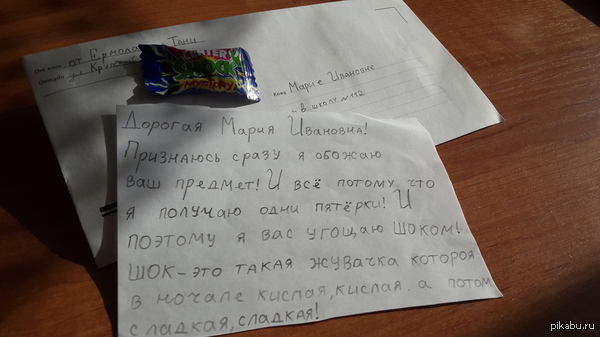 От кого от Ермола Тани
Откуда ул Крупской
Кому Марие Ивановне
в школу №112
Дорогая Мария Ивановна!
Признаюсь сразу я обожаю
ваш предмет! И всё потому что
я получаю одни пятёрки! И
поэтому я вас угощаю Шоком!
Шок-это такая жувачка котороя
в ночале кислая, кислая. а потом
сладкая, сладкая!
pikabu.ru